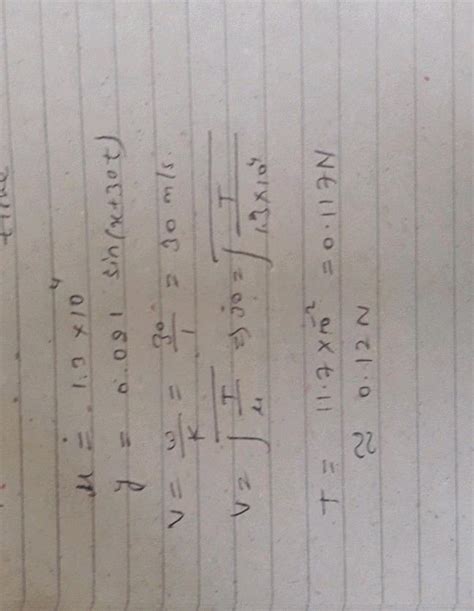 time
μ = 1.3 × 10⁴
y = 0.021 sin(x+30t)
v = ω/K = 30/1 = 30 m/s.
v = √(T/μ) ⇒ 30 = √(T/1.3×10⁴)
T = 11.7 × 10⁻² = 0.117N
≈ 0.12N